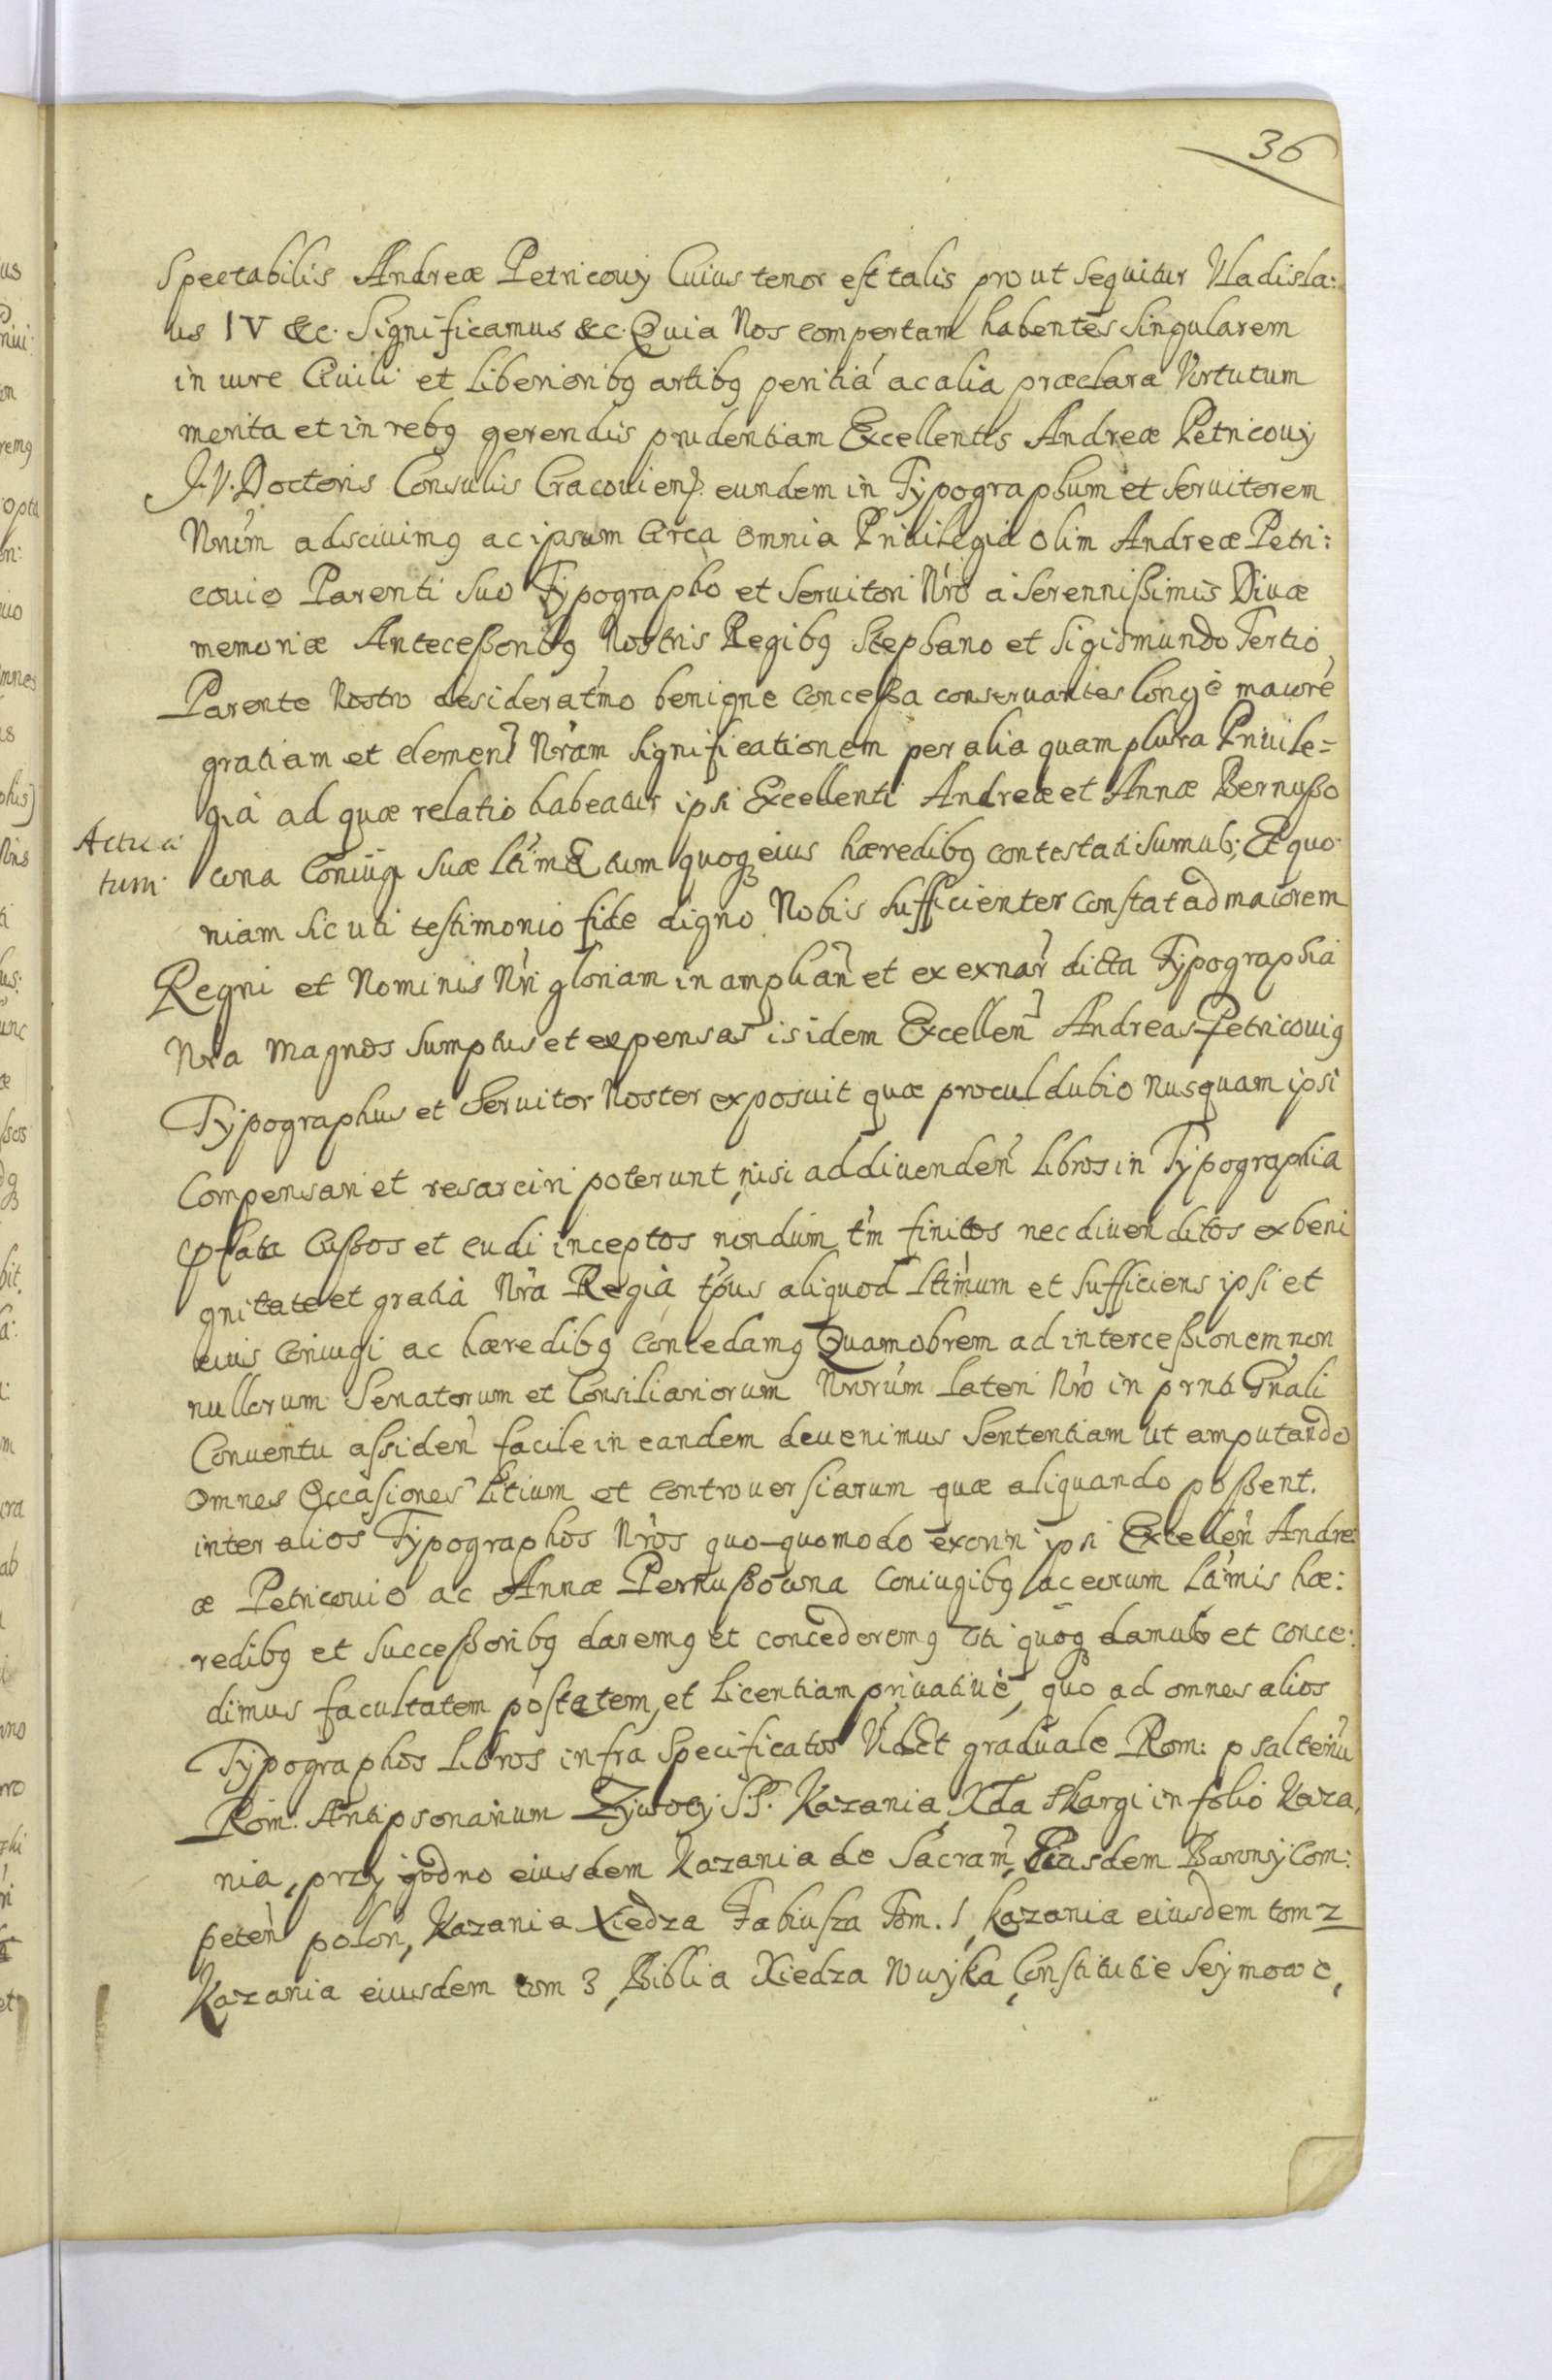 36
Spectabilis Andreæ Petricouÿ Cuius tenor est talis prout sequitur Vladisla:
us IV &c. Significamus &c. Quia Nos compertam habentes singularem
in iure Ciuili et liberioribg artibg peritiá ac alia præclara Virtutum
merita et in rebg gerendis prudentiam Excellentis Andreæ Petricouÿ
J.V. Doctoris Consulis Cracouien̄ eundem in Typographum et seruitorem
Nrūm adsciuimg ac ipsum circa omnia Priuilegia olim Andreæ Petri:
couio Parenti suo Typographo et seruitori Nr̄o a Serennißimis Diuæ
memoriæ Anteceßoribg Nostris Regibg Stephano et Sigismundo Tertio
Parente Nostro desiderat̄mo benigne conceßa conseruantes longè maiore
gratiam et clemen̄ Nr̄am significationem per alia quamplura Priuile=
gia ad quæ relatio habeatur ipsi Excellenti Andreæ et Annæ Pernußo
Actica
tum
wna Coniugi suæ lt̄imæ tum quoq eius hæredibg contestati sumus; Et quo
niam sicuti testimonio fide digno Nobis sufficienter constat ad maiorem
Regni et Nominis Nr̄i gloriam in amplian̄ et ex exnan̄ dicta Typographia
Nr̄a magnos sumptus et expensas is idem Excellen̄ Andreas Petricouig
Typographus et Seruitor Noster exposuit quæ procul dubio nusquam ipsi
compensari et resarciri poterunt, nisi ad diuenden̄ libros in Typographia
p̄fata cußos et cudi inceptos nondum t̄m finitos nec diuenditos ex beni
gnitate et gratia Nr̄a Regia tp̄us aliquod lt̄imum et sufficiens ipsi et
eius coniugi ac hæredibg concedamg Quamobrem ad interceßionem non
nullorum Senatorum et Consiliariorum Nrorūm lateri Nr̄o in prn̄ti Gn̄ali
Conuentu assiden̄ facile in eandem deuenimus Sententiam ut amputando
omnes occasiones litium et controuersiarum quæ aliquando poßent.
inter alios Typographos Nr̄os quo-quomodo exoriri ipsi Excellen̄ Andre
æ Petricouio ac Annæ Pernußowna coniugibg ac eorum lt̄imis hæ:
redibg et succeßoribg daremg et concederemg uti quoq damus et conce:
dimus facultatem po̅statem, et licentiam priuatiué, quo ad omnes alios
Typographos libros infra specificatos Vidlt graduale Rom: psalteriu̅
Rom: Antipsonarium Zÿwoty SS. Kazania Xda Skargi in folio Kaza,
nia, przÿgodno eiusdem Kazania de Sacram̄, Eiusdem Baronÿ Com:
peten̄ polon̄, Kazania Xiedza Fabiusza Tom. 1, Kazania eiusdem tom 2
Kazania eiusdem tom 3, Biblia Xiedza Wuÿka, Constitutie Seÿmowe,